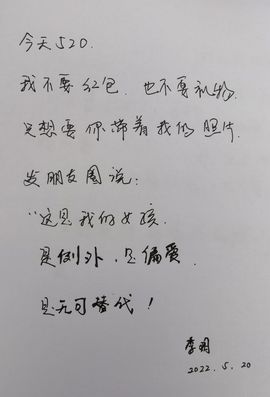 今天520.
我不要红包.也不要礼物.
只想要你带着我的照片.
发朋友圈说:
"这是我的女孩.
是例外.是偏爱.
是无可替代!
李明
2022.5.20